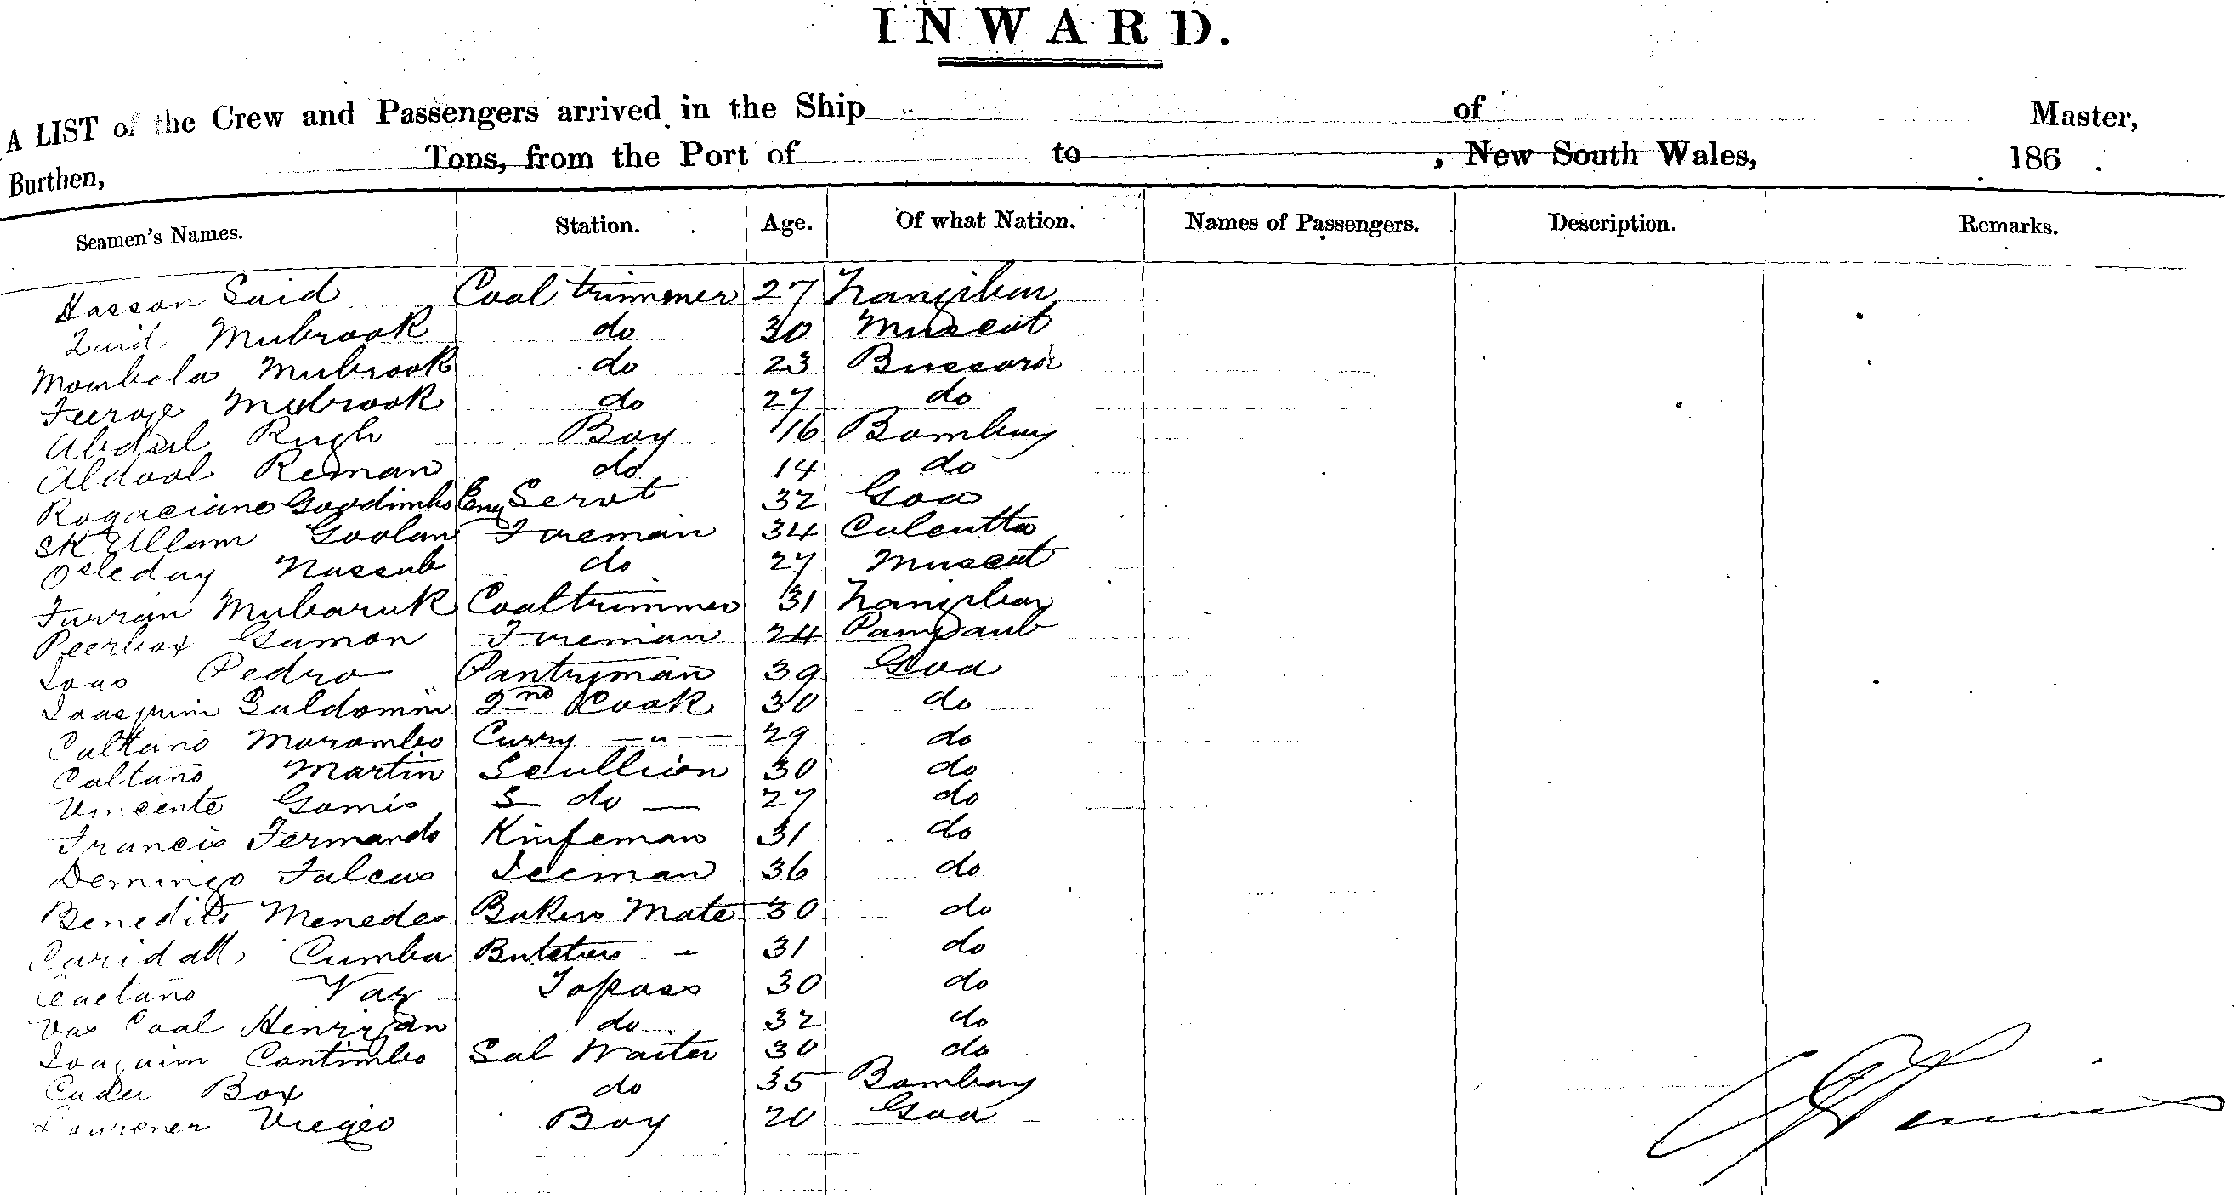 INWARD.
A LIST of the Crew and Passengers arrived in the Ship of Master,
Burthen, Tons, from the Port of to , New South Wales, 186 .
Seamen's Names. Station. Age. Of what Nation. Names of Passengers. Description. Remarks.
Hassan Said Coal trimmer 27 Zanzibar
Zuid Mubrook do 30 Muscat
Mombela Mubrook do 23 Bussora
Feeroje Mubrook do 27 do
Abdul Rugh Boy 16 Bombay
Aldool Reman do 14 do
Rogaciano Goodimho Eng Servt 32 Goa
SK Ullam Goolam Foreman 34 Calcutta
Nassub do 27 Muscat
Furran Mubaruk Coaltrimmer 31 Zanzibar
Peerbox Gamon Foreman 24
Joao Pedro Pantryman 39 Goa
Joaquim Saldomin 2nd Cook 30 do
Caltano Morombo Curry — " — 29 do
Caltano Martin Scullion 30 do
Vincente Gomis S do — 27 do
Francis Fernando Knifeman 31 do
Demingo Falcao Iceman 36 do
Benedito Menedes Bakers Mate 30 do
Cumba Butchers - 31 do
Caetano Vaz Topass 30 do
Vas Coal do 32 do
Joaquim Contimbo Sal Waiter 30 do
Cader Box do 35 Bombay
Viegio Boy 20 Goa